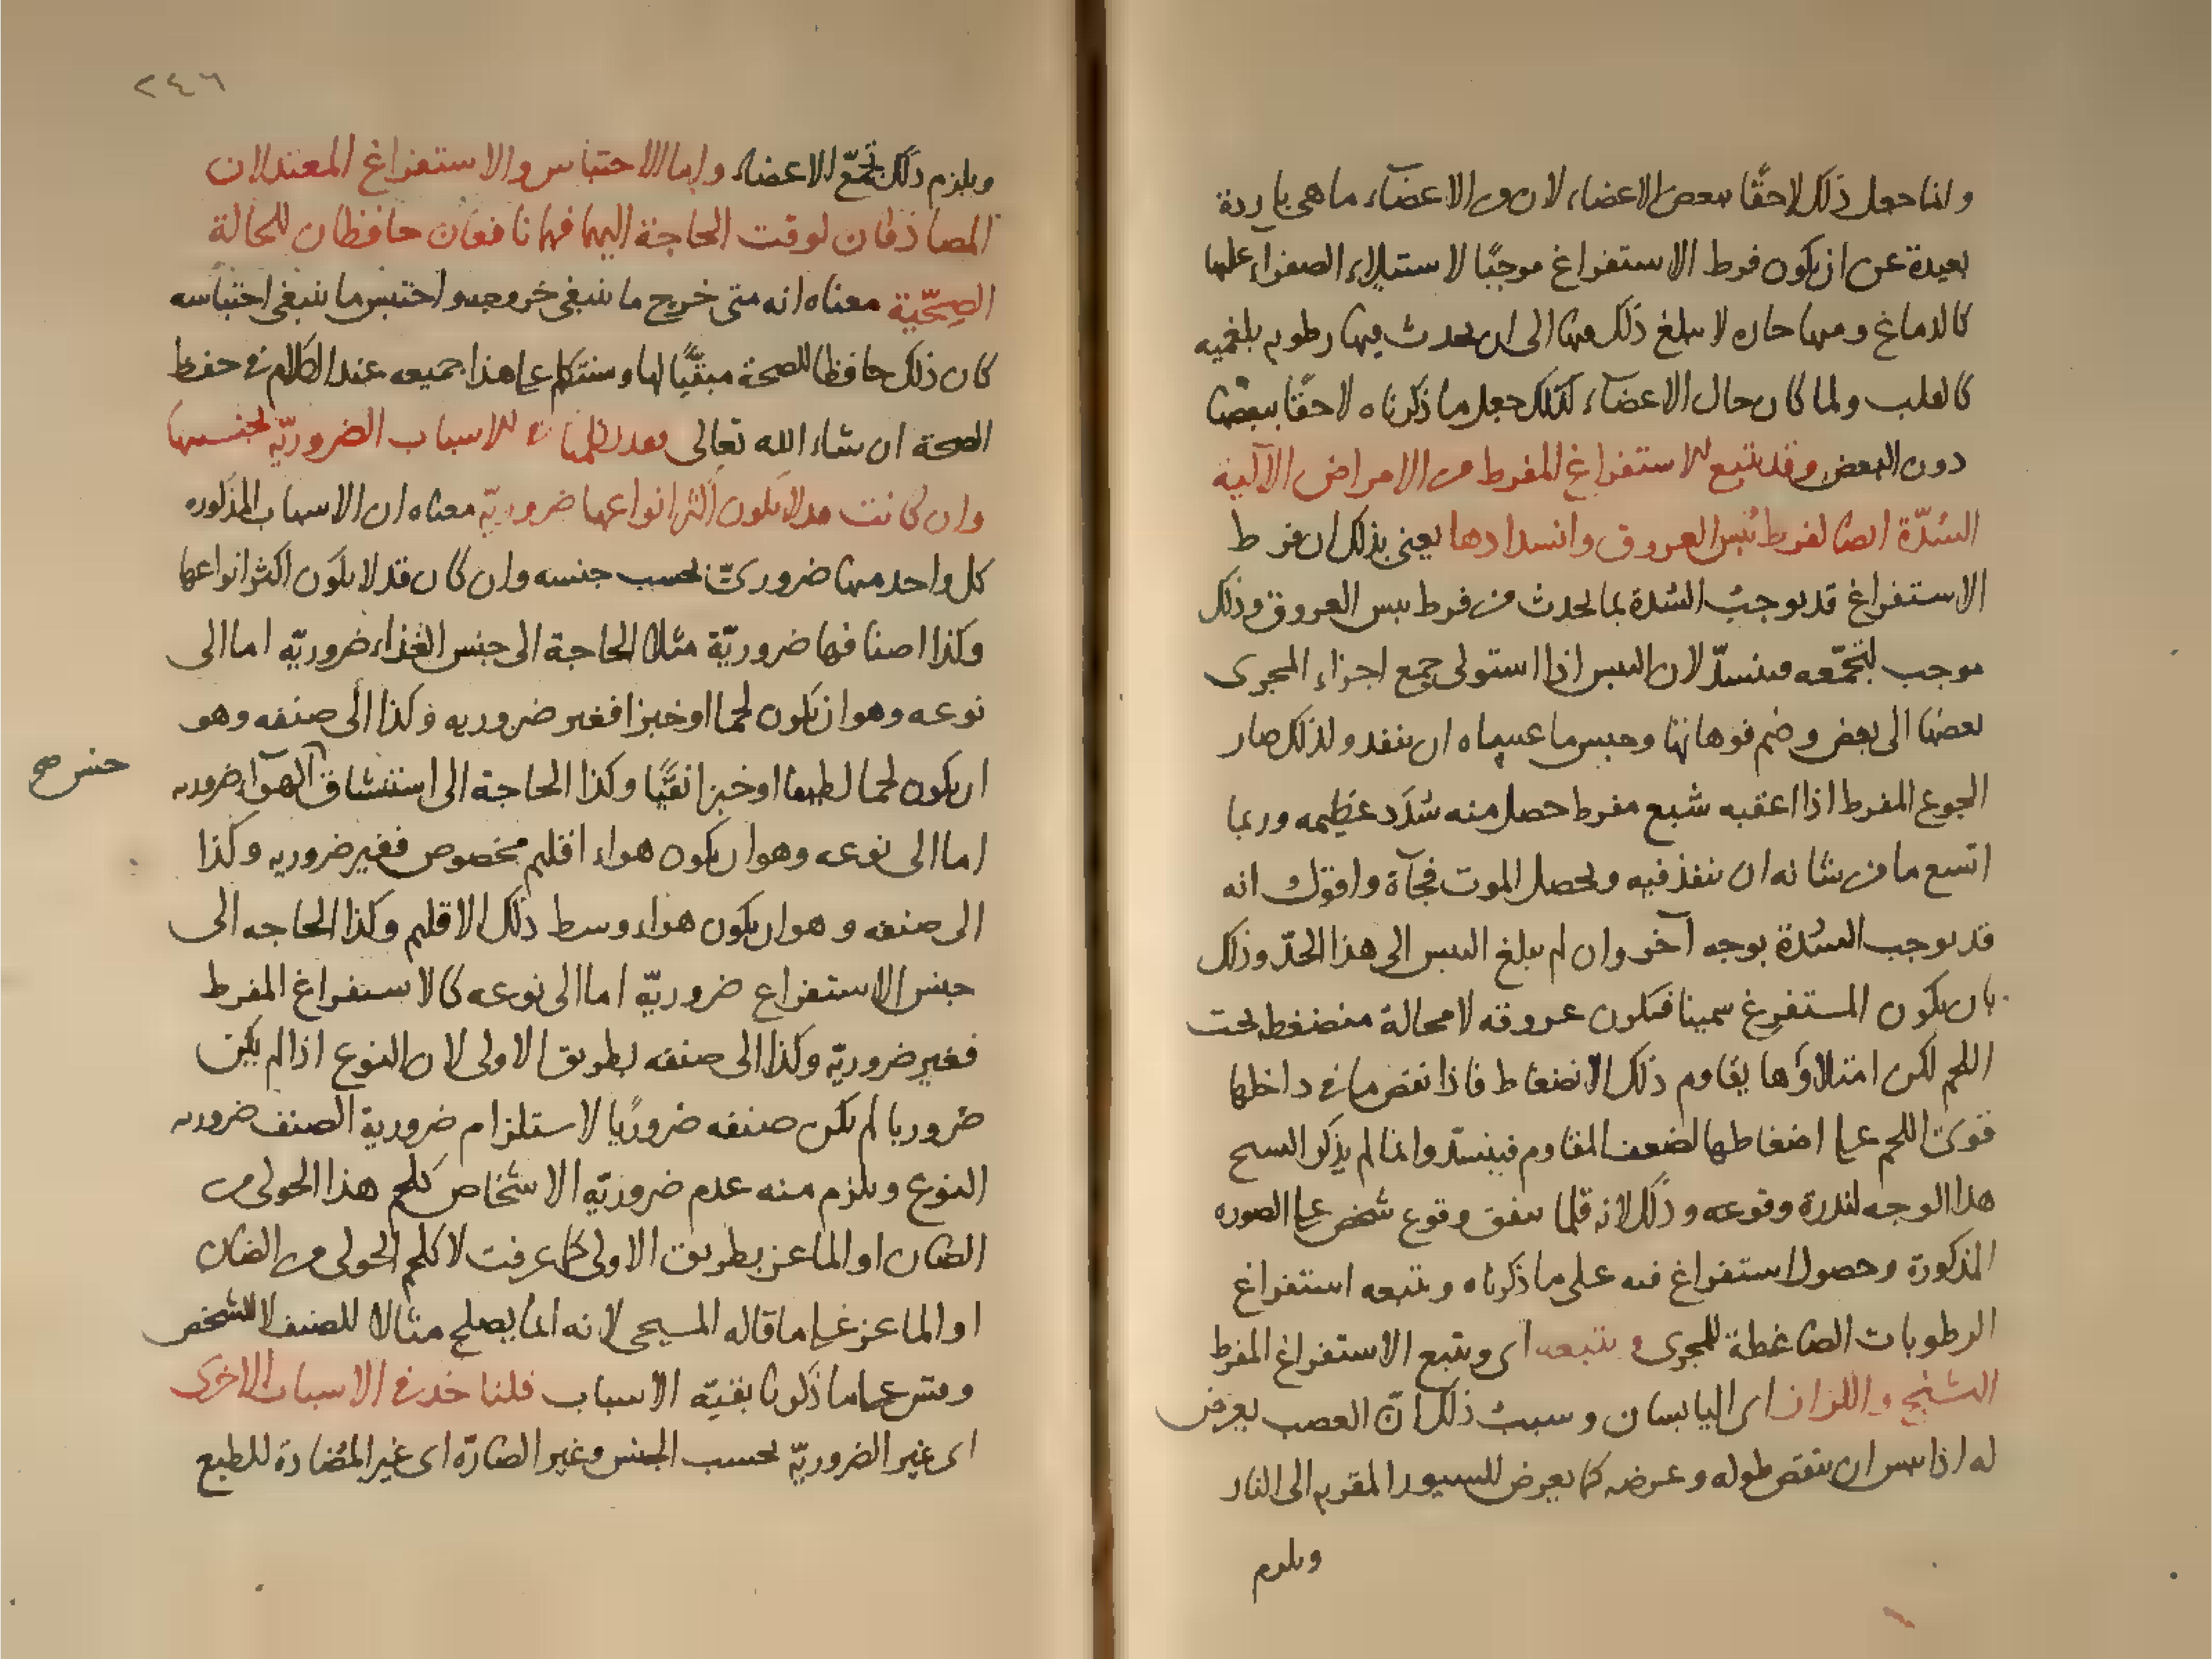 وانما جعل ذلك لاحقًا ببعض الاعضاء لان من الاعضآء ما هى باردة
بعيدة عن ان يكون فرط الاستفراغ موجبًا لاستيلاء الصفراء عليها
كالدماغ ومنها حاره لا يبلغ ذلك فيها الى ان يحدث فيها رطوبه بلغميه
كالقلب ولما كان حال الاعضآء كذلك جعل ما ذكرناه لاحقًا ببعضها
دون البعض وقد يتبع الاستفراغ المفرط من الامراض الآلية
السُدّة ايضا لفرط يُبس العروق وانسدادها يعنى بذلك ان فرط
الاستفراغ قد يوجبُ السُدة بما يحدث من فرط يبس العروق وذلك
موجب لتجمّعه فينسدّ لان اليبس اذا استولى جمع اجزاء المجرى
بعضها الى بعض وضم فوهاتها وحبس ما عساه ان ينفد ولذلك صار
الجوع المفرط اذا اعقبه شبع مفرط حصل منه سُدَد عظيمه وربما
اتسع ما من شانه ان ينفذ فيه ويحصل الموت فجآة واقول انه
قد يوجب السُدة بوجه آخر وان لم يبلغ اليبس الى هذا الحدّ وذلك
بان يكون المستفرغ سمينا فتكون عروقه لا محالة منضغطه تحت
اللحم لكن امتلاؤها يقاوم ذلك الانضغاط فاذا نقص ما فى داخلها
قوى اللحم على اضغاطها لضعف المقاوم فينسدّ وانما لم يذكر الشيخ
هذا الوجه لندرة وقوعه وذلك لانه قلما يتفق وقوع شخص على الصوره
المذكورة وحصول استفراغ فيه على ما ذكرناه ويتبعه استفراغ
الرطوبات الضاغطة للمجرى ويتبعه اى ويتبع الاستفراغ المفرط
التشنج والكزاز اى اليابسان وسببُ ذلك انّ العصب يعرض
له اذا يبس ان ينقص طوله وعرضه كما يعرض للسيور المقربه الى النار
ويلزم
٢٤٦
ويلزم ذلك تجمّع الاعضاء واما الاحتباس والاستفراغ المعتدلان
المصادفان لوقت الحاجة اليهما فهما نافعان حافظان للحالة
الصحّيّة معناه انه متى خرج ما ينبغى خروجه واحتبس ما ينبغى احتباسه
كان ذلك حافظا للصحة مبقّيًا لها وسنتكلم على هذا جميعه عند الكلام فى حفظ
الصحة ان شاء الله تعالى فقد تكلمنا فى الاسباب الضروريّة بجنسها
وان كانت قد لا يكون اكثر انواعها ضروريّة معناه ان الاسباب المذكوره
كل واحد منها ضرورىّ بحسب جنسه وان كان قد لا يكون اكثر انواعها
وكذا اصنافها ضروريّة مثلا الحاجة الى جنس الغذاء ضروريّه اما الى
نوعه وهو ان يكون لحما او خبزا فغير ضروريه وكذا الى صنفه وهو
ان يكون لحما لطيفا او خبزا نقيًا وكذا الحاجة الى استنشاق الهوآء ضروريه
جنس صح
اما الى نوعه وهو ان يكون هواء اقليم مخصوص فغير ضروريه وكذا
الى صنفه وهو ان يكون هواء وسط ذلك الاقليم وكذا الحاجه الى
جنس الاستفراغ ضروريّه اما الى نوعه كالاستفراغ المفرط
فغير ضروريّه وكذا الى صنفه بطريق الاولى لان النوع اذا لم يكن
ضروريا لم يكن صنفه ضروريًا لاستلزام ضرورية الصنف ضروريه
النوع ويلزم منه عدم ضروريّه الاشخاص كلحم هذا الحولى من
الضان او الماعز بطريق الاولى كما عرفت لا كلحم الحولى من الضان
او الماعز على ما قاله المسيحى لانه انما يصلح مثالا للصنف لا للشخص
وقس على ما ذكرنا بقيّه الاسباب فلناخذ فى الاسباب الاخرى
اى غير الضروريّه بحسب الجنس وغير الضارّه اى غير المُضادة للطبع